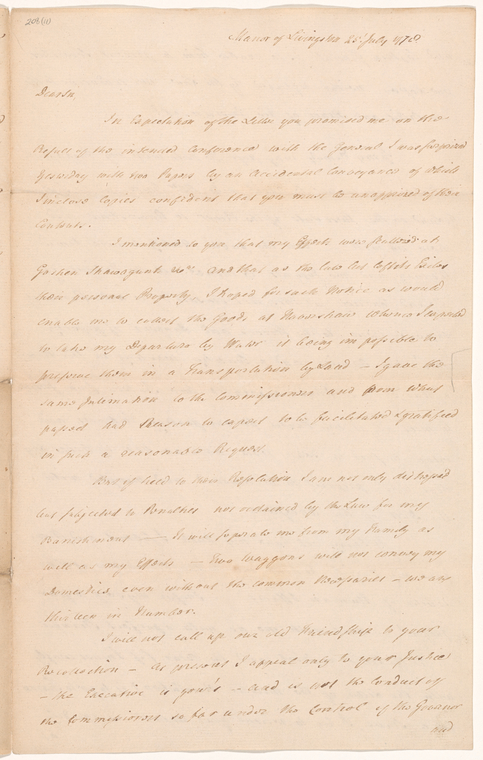 208 (1)
Manor of Livingston 25 July 1778
Dear Sir
In Expectation of the Letter you promised me on the
Result of the intended Conference with the General I was surprized
Yesterday with two Papers by an Accidental Conveyance of which
I inclose Copies confident that you must be unapprized of their
Contents.
I mentioned to you that my Effects were scattered at
Goshen Shawangunk &c. and that as the Law left Exiles
their personal Property, I hoped for such Notice as would
enable me to collect the Goods at whence I expected
to take my Departure by Water it being impossible to
preserve them in a Transportation by Land – I gave the
same Intimation to the Commissioners and from what
passed had Reason to expect to be facilitated & gratified
in such a reasonable Request.
But if held to their Resolution I am not only distressed
but subjected to Penalties not ordained by the Law for my
Banishment – It will separate me from my Family as
well as my Effects – Two Waggons will not convey my
Domestics even without the common Necessaries – we are
thirteen in Number.
I will not call up our old Friendship to your
Recollection – At present I appeal only to your Justice
– the Executive is yours – and is not the Conduct of
the Commissioners so far under the Control of the Governor
and